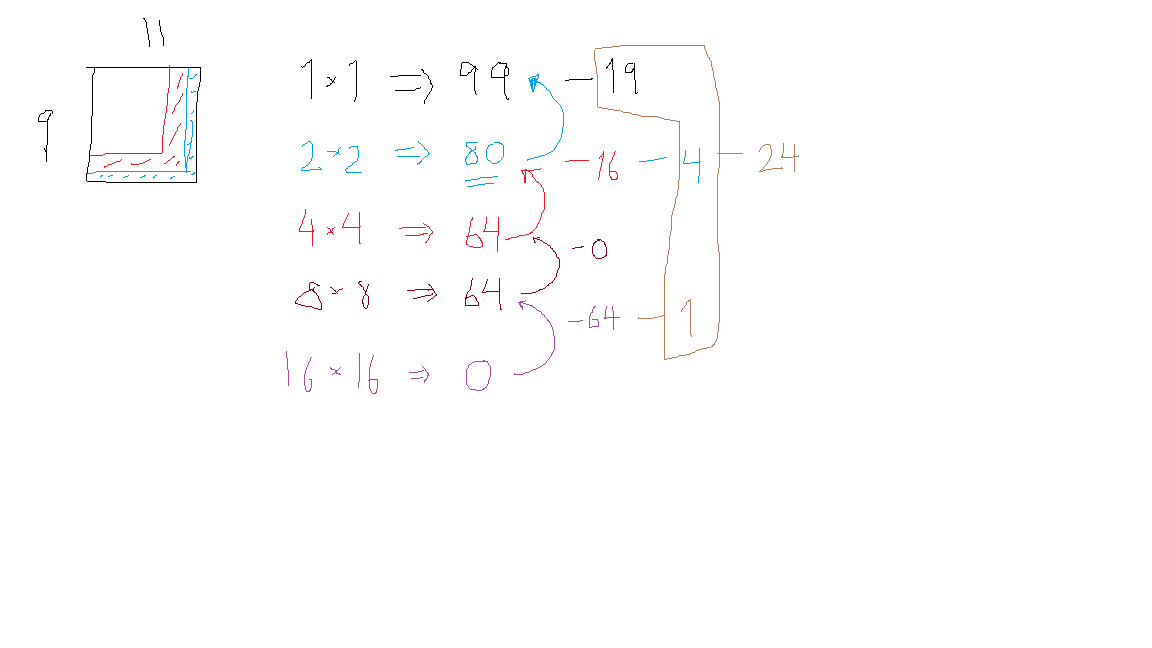 11
9
1 × 1 ⇒ 99 - 19
2 × 2 ⇒ 80 - 16 - 4 - 24
4 × 4 ⇒ 64
- 0
8 × 8 ⇒ 64
- 64 - 1
16 × 16 ⇒ 0